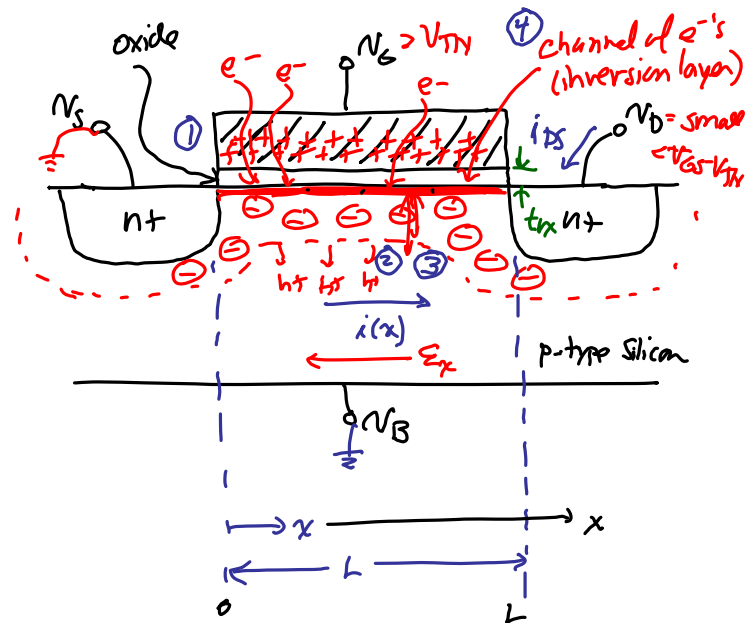 ④
oxide
v_G > V_TN
channel of e⁻'s
(inversion layer)
e⁻ e⁻ e⁻
v_S
①
i_DS
v_D = small
< v_GS - V_TN
+ + + + + + + +
n+
t_ox
n+
− − − − −
− − − − −
② ③
h+ h+ h+
i(x)
ℰ_x
p-type silicon
v_B
x
x
L
0
L